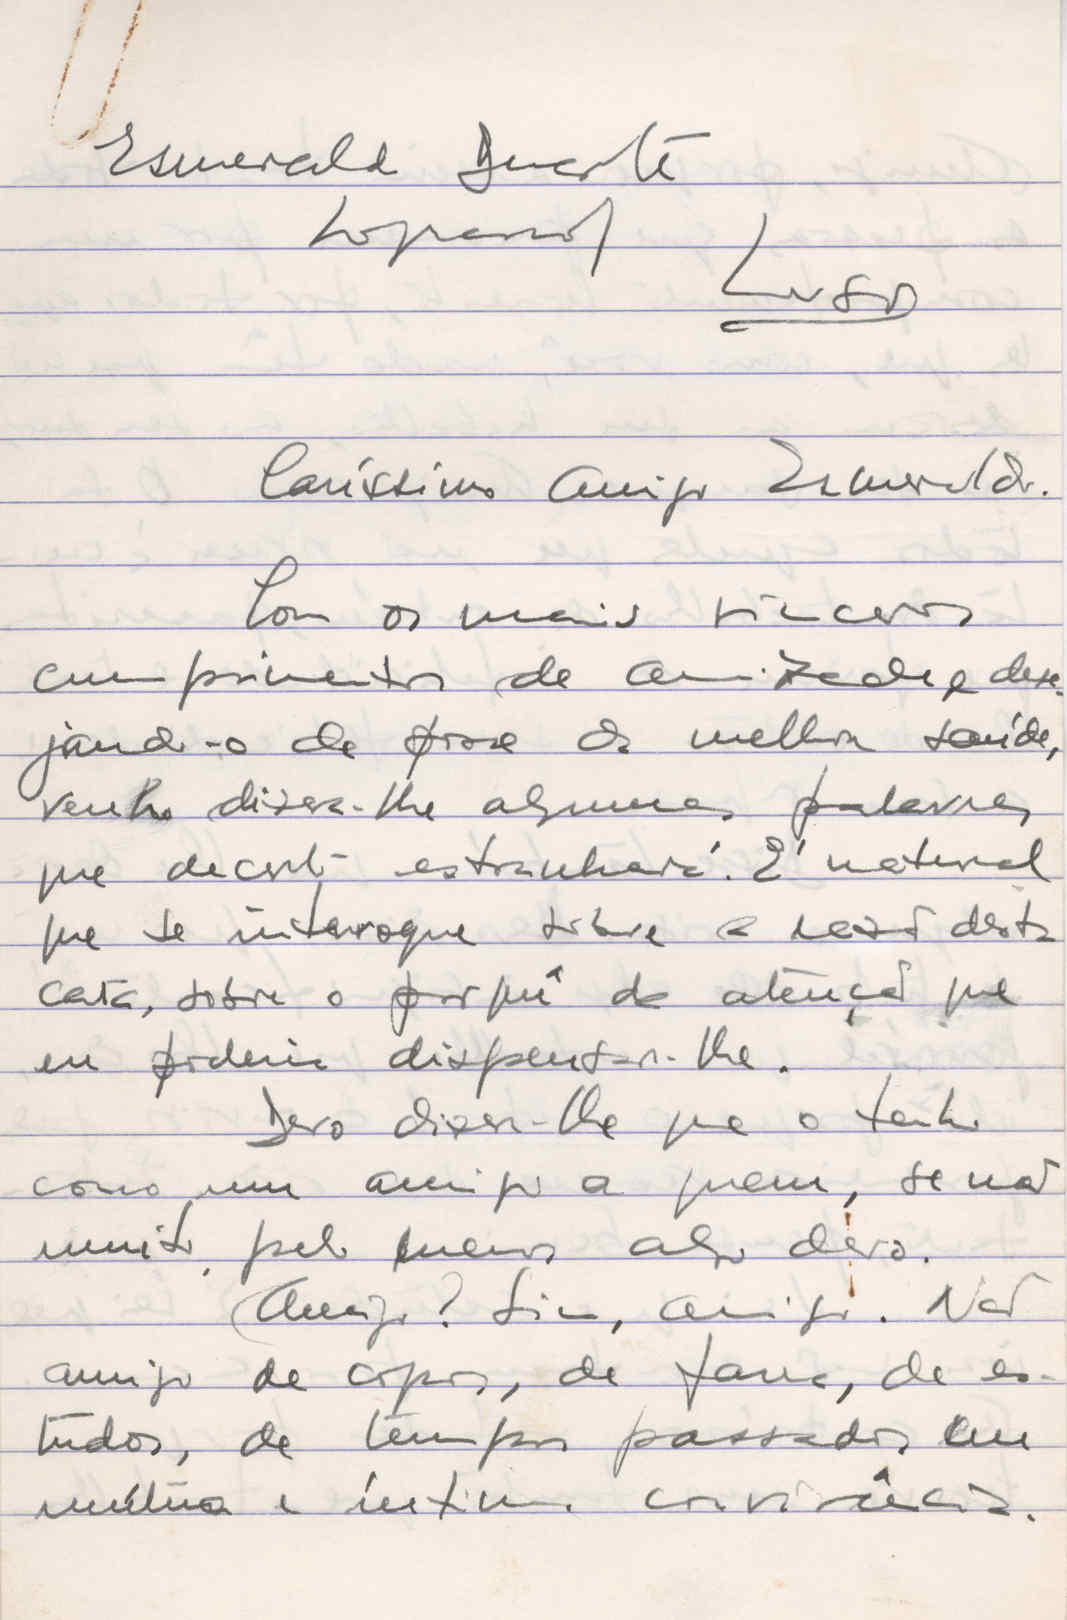 Esmeraldo Duarte
Luso
Caríssimo amigo Esmeraldo.
Com os mais sinceros
cumprimentos de amizade, e dese-
jando-o de posse da melhor saúde,
venho dizer-lhe algumas palavras
que decerto estranhará. É natural
que se interrogue sobre a razão desta
carta, sobre o porquê da atenção que
eu poderia dispensar-lhe.
Devo dizer-lhe que o tenho
como um amigo a quem, se não
muito, pelo menos algo devo.
Amigo? Sim, amigo. Não
amigo de copos, de farra, de es-
tudos, de tempos passados em
mútua e íntima convivência.